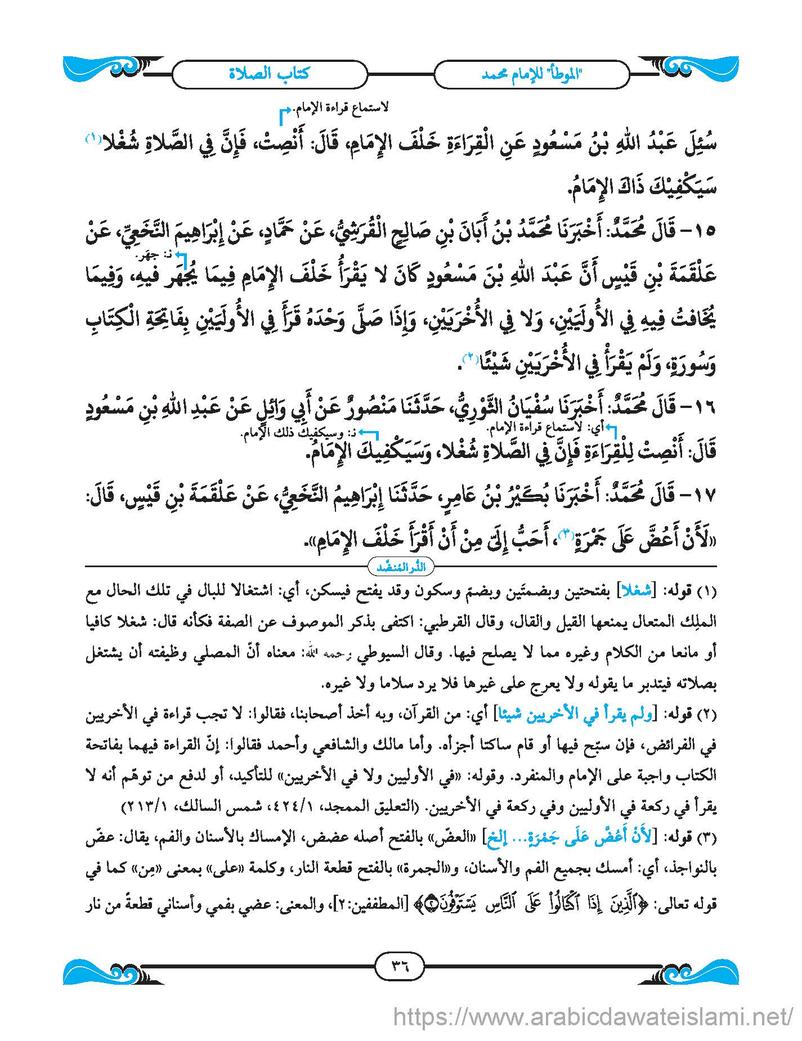 "الموطأ" للإمام محمد
كتاب الصلاة
لاستماع قراءة الإمام.
سُئِلَ عَبْدُ اللهِ بْنُ مَسْعُودٍ عَنِ الْقِرَاءَةِ خَلْفَ الإِمَامِ، قَالَ: أَنْصِتْ، فَإِنَّ فِي الصَّلاةِ شُغْلا(١)
سَيَكْفِيْكَ ذَاكَ الإِمَامُ.
١٥- قَالَ مُحَمَّدٌ: أَخْبَرَنَا مُحَمَّدُ بْنُ أَبَانَ بْنِ صَالِحٍ الْقُرَشِيُّ، عَنْ حَمَّادٍ، عَنْ إِبْرَاهِيمَ النَّخَعِيِّ، عَنْ
نـ: جهَر.
عَلْقَمَةَ بْنِ قَيْسٍ أَنَّ عَبْدَ اللهِ بْنَ مَسْعُودٍ كَانَ لا يَقْرَأُ خَلْفَ الإِمَامِ فِيمَا يُجْهَر فِيهِ، وَفِيمَا
يُخَافتُ فِيهِ فِي الأُولَيَيْنِ، وَلا فِي الأُخْرَيَيْنِ، وَإِذَا صَلَّى وَحْدَهُ قَرَأَ فِي الأُولَيَيْنِ بِفَاتِحَةِ الْكِتَابِ
وَسُورَةٍ، وَلَمْ يَقْرَأْ فِي الأُخْرَيَيْنِ شَيْئًا(٢).
١٦- قَالَ مُحَمَّدٌ: أَخْبَرَنَا سُفْيَانُ الثَّوْرِيُّ، حَدَّثَنَا مَنْصُورٌ عَنْ أَبِي وَائِلٍ عَنْ عَبْدِ اللهِ بْنِ مَسْعُودٍ
أي: لاستماع قراءة الإمام.
نـ: وسيكفيك ذلك الإمام.
قَالَ: أَنْصِتْ لِلْقِرَاءَةِ فَإِنَّ فِي الصَّلاةِ شُغْلا، وَسَيَكْفِيكَ الإِمَامُ.
١٧- قَالَ مُحَمَّدٌ: أَخْبَرَنَا بُكَيْرُ بْنُ عَامِرٍ، حَدَّثَنَا إِبْرَاهِيمُ النَّخَعِيُّ، عَنْ عَلْقَمَةَ بْنِ قَيْسٍ، قَالَ:
«لَأَنْ أَعُضَّ عَلَى جَمْرَةٍ(٣)، أَحَبُّ إِلَيَّ مِنْ أَنْ أَقْرَأَ خَلْفَ الإِمَامِ».
الدُّر المُنضَّد
(١) قوله: [شغلا] بفتحتين وبضمتَين وبضمّ وسكون وقد يفتح فيسكن، أي: اشتغالا للبال في تلك الحال مع
الملِك المتعال يمنعها القيل والقال، وقال القرطبي: اكتفى بذكر الموصوف عن الصفة فكأنه قال: شغلا كافيا
أو مانعا من الكلام وغيره مما لا يصلح فيها. وقال السيوطي رحمه الله: معناه أنّ المصلي وظيفته أن يشتغل
بصلاته فيتدبر ما يقوله ولا يعرج على غيرها فلا يرد سلاما ولا غيره.
(٢) قوله: [ولم يقرأ في الأخريين شيئا] أي: من القرآن، وبه أخذ أصحابنا، فقالوا: لا تجب قراءة في الأخريين
في الفرائض، فإن سبّح فيها أو قام ساكتا أجزأه. وأما مالك والشافعي وأحمد فقالوا: إنّ القراءة فيهما بفاتحة
الكتاب واجبة على الإمام والمنفرد. وقوله: «في الأوليين ولا في الأخريين» للتأكيد، أو لدفع من توهّم أنه لا
يقرأ في ركعة في الأوليين وفي ركعة في الأخريين. (التعليق الممجد، ٤٢٤/١، شمس السالك، ٢١٣/١)
(٣) قوله: [لأَنْ أَعُضَّ عَلَى جَمْرَةٍ... إلخ] «العضّ» بالفتح أصله عضض، الإمساك بالأسنان والفم، يقال: عضّ
بالنواجذ، أي: أمسك بجميع الفم والأسنان، و«الجمرة» بالفتح قطعة النار، وكلمة «على» بمعنى «مِن» كما في
قوله تعالى: ﴿ٱلَّذِينَ إِذَا ٱكْتَالُوا۟ عَلَى ٱلنَّاسِ يَسْتَوْفُونَ۝٢﴾ [المطففين:٢]، والمعنى: عضي بفمي وأسناني قطعةً من نار
٣٦
https://www.arabicdawateislami.net/